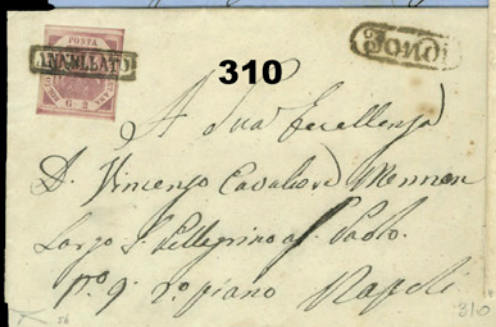 POSTA
ANNULLATO
G. 2
310
A Sua Eccellenza
D. Vincenzo Cavaliere Mennon
Largo S. Pellegrino a S. Paolo.
n.o 9. 2.o piano Napoli
310